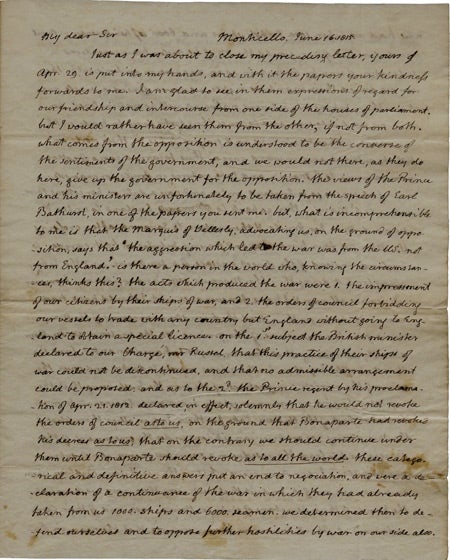 My dear Sir Monticello. June 16. 1815
Just as I was about to close my preceding letter, yours of
Apr. 29. is put into my hands, and with it the papers your kindness
forwards to me. I am glad to see in them expressions of regard for
our friendship and intercourse from one side of the houses of parliament.
but I would rather have seen them from the other, if not from both.
what comes from the opposition is understood to be the converse of
the sentiments of the government, and we would not there, as they do
here, give up the government for the opposition. the views of the Prince
and his ministers are unfortunately to be taken from the speech of Earl
Bathurst, in one of the papers you sent me. but, what is incomprehensible
to me is that the Marquis of Wellesly, advocating us, on the ground of oppo-
sition, says that "the aggression which led to the war was from the US. not
from England." is there a person in the world who, knowing the circumstan-
ces, thinks this? the acts which produced the war were 1. the impressment
of our citizens by their ships of war, and 2. the orders of council forbidding
our vessels to trade with any country but England without going to Eng-
land to obtain a special licence. on the 1st subject the British minister
declared to our Chargé, mr Russel, that this practice of their ships of
war could not be discontinued, and that no admissible arrangement
could be proposed. and as to the 2d. the Prince regent by his proclama-
tion of apr. 21. 1812. declared in effect, solemnly that he would not revoke
the orders of council as to us, on the ground that Bonaparte had revoked
his decrees as to us; that on the contrary we should continue under
them until Bonaparte should revoke as to all the world. these catego-
rical and definitive answers put an end to negociation, and were a de-
claration of a continuance of the war in which they had already
taken from us 1000. ships and 6000. seamen. we determined then to de-
fend ourselves and to oppose further hostilities by war on our side also.